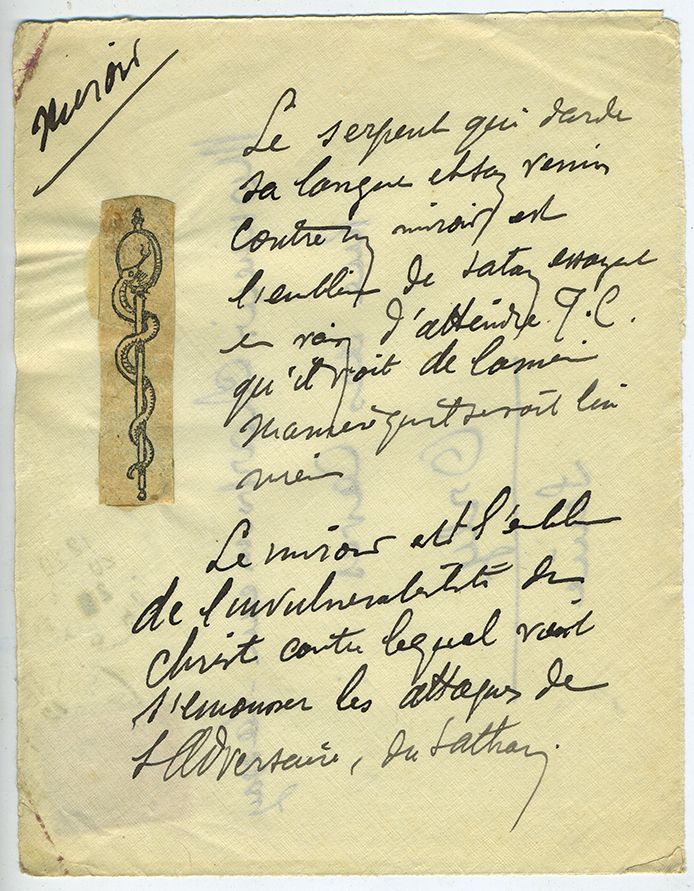 Miroir
Le serpent qui darde
sa langue et son venin
contre un miroir est
l'emblème de Satan essayant
en vain d'atteindre J.C.
qu'il voit de la même
manière qu'il se voit lui
même
Le miroir est l'emblème
de l'invulnérabilité du
Christ contre lequel vont
s'émousser les attaques de
l'Adversaire, du Sathan.